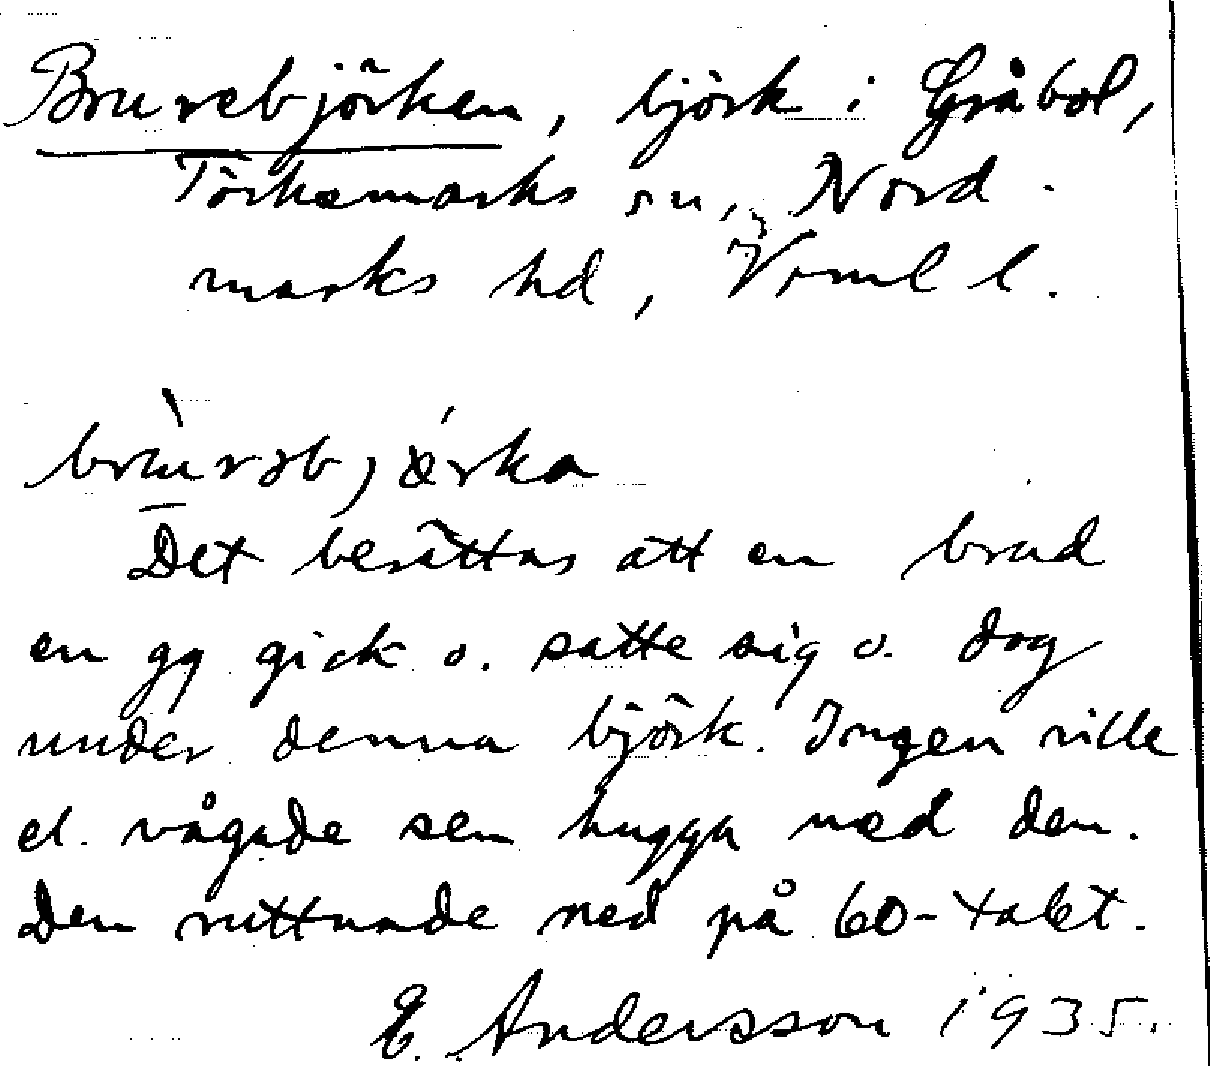 Brurebjörken, björk i Gråbol,
Törksmarks sn, Nord-
marks hd, Vrml l.
brùrəbjǿrka
Det berättas att en brud
en gg gick o. satte sig o. dog
under denna björk. Ingen ville
el. vågade sen hugga ned den.
Den ruttnade ned på 60-talet.
E. Andersson 1935.